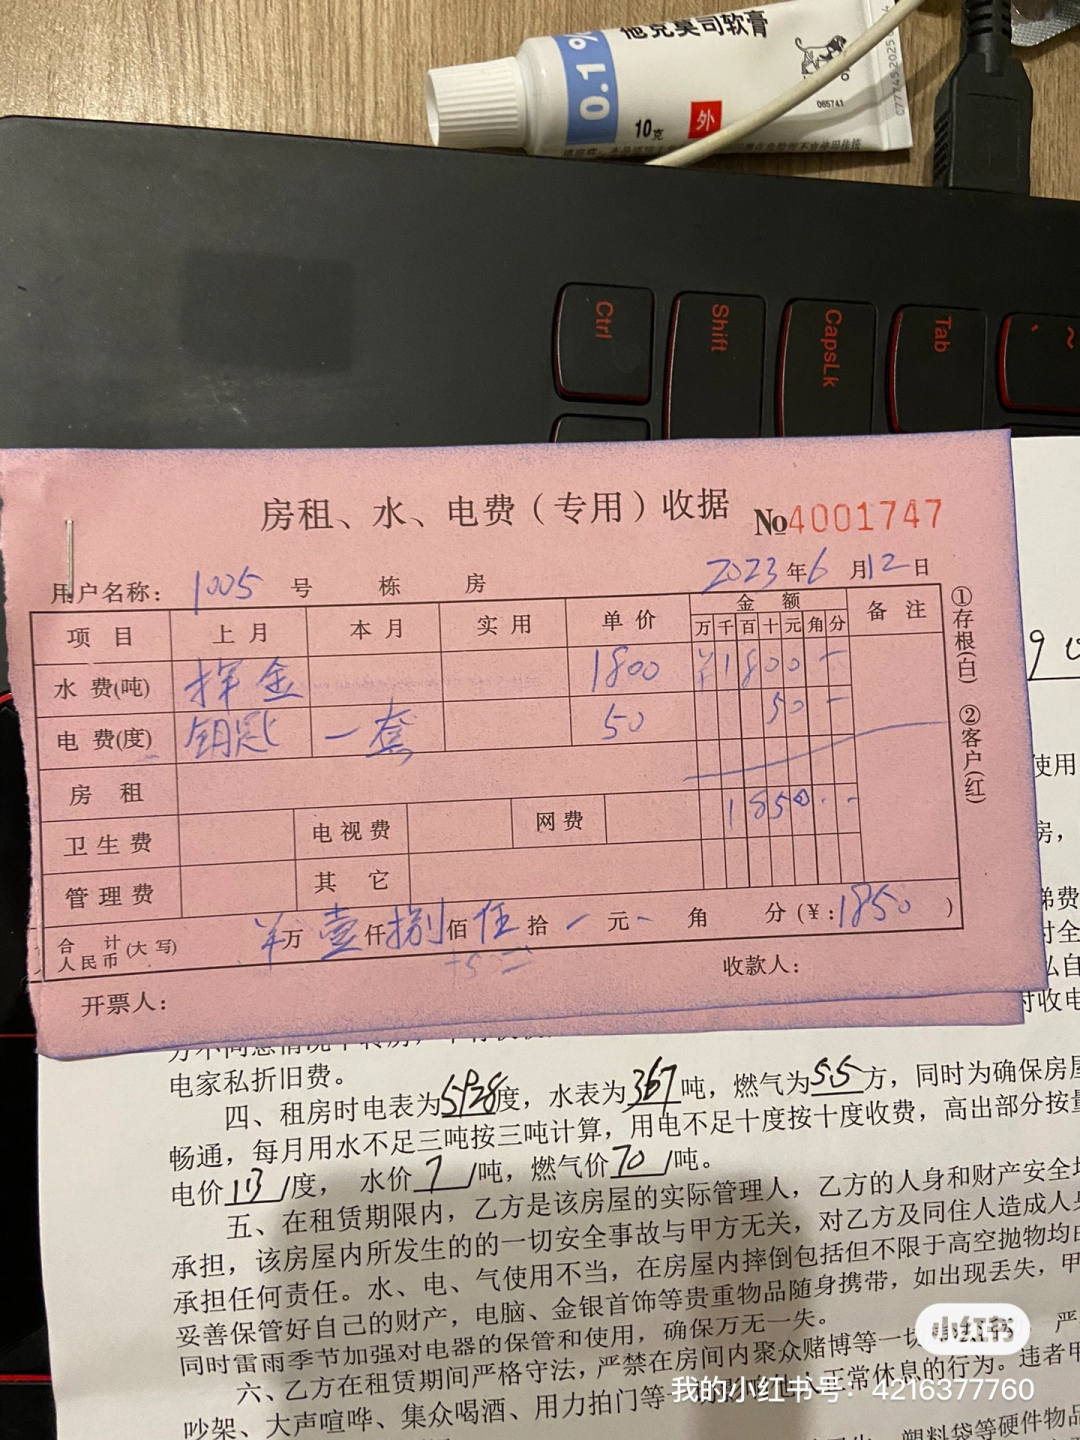 他克莫司软膏
0.1%
10克
外
065741
Ctrl
Shift
CapsLk
Tab
~
房租、水、电费(专用)收据 №4001747
用户名称: 1005 号 栋 房 2023年6月12日
项目 上月 本月 实用 单价 金额 备注
万千百十元角分
水费(吨) 押金 1800 ¥1800 -
电费(度) 钥匙 一套 50 50 -
房租
卫生费 电视费 网费 1850 - -
管理费 其它
合计人民币(大写) ¥万壹仟捌佰伍拾-元-角 分(¥:1850)
开票人: 收款人:
①存根(白) ②客户(红)
使用
房,
电家私折旧费。
四、租房时电表为5928度,水表为367吨,燃气为55方,同时为确保房屋
畅通,每月用水不足三吨按三吨计算,用电不足十度按十度收费,高出部分按量
电价113/度, 水价7/吨,燃气价70/吨。
五、在租赁期限内,乙方是该房屋的实际管理人,乙方的人身和财产安全
承担,该房屋内所发生的的一切安全事故与甲方无关,对乙方及同住人造成人身
承担任何责任。水、电、气使用不当,在房屋内摔倒包括但不限于高空抛物均由
妥善保管好自己的财产,电脑、金银首饰等贵重物品随身携带,如出现丢失,甲
同时雷雨季节加强对电器的保管和使用,确保万无一失。
六、乙方在租赁期间严格守法,严禁在房间内聚众赌博等一切 严
吵架、大声喧哗、集众喝酒、用力拍门等一 正常休息的行为。违者甲
塑料袋等硬件物品
小红书
我的小红书号:4216377760